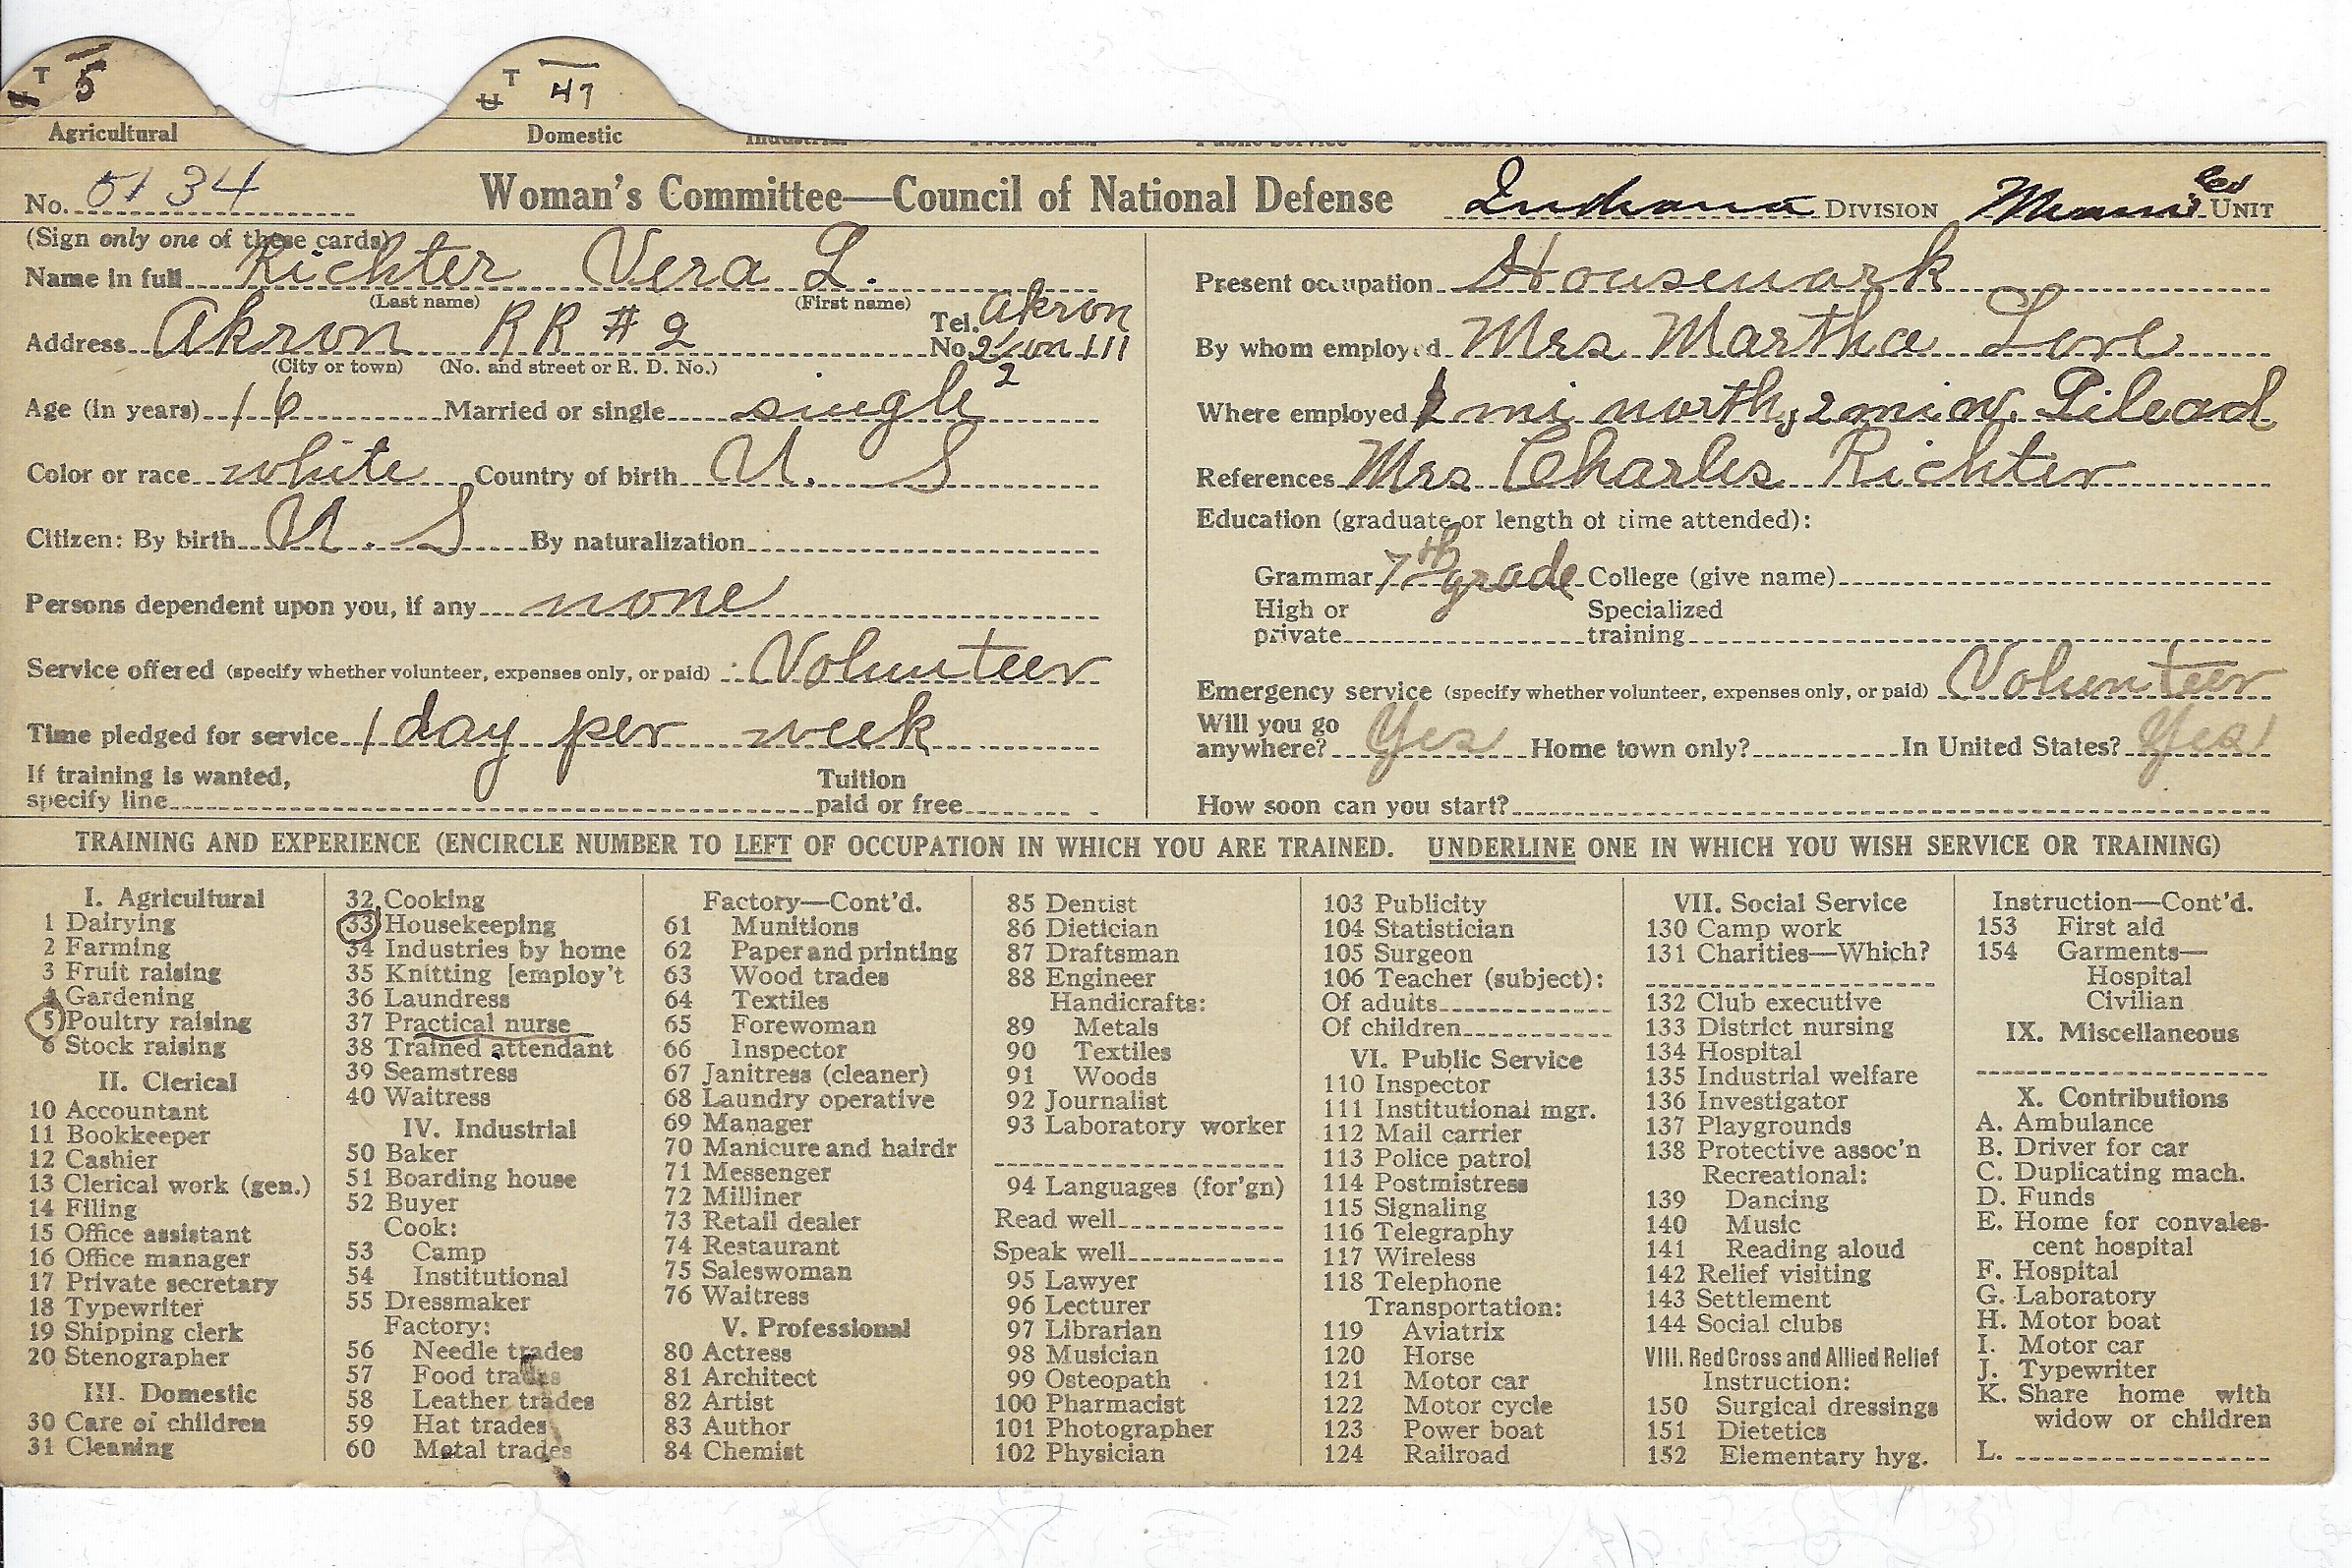 T 5 T 47
U
Agricultural Domestic
No. 5134 Woman's Committee—Council of National Defense Indiana DIVISION Miami Co UNIT
(Sign only one of these cards)
Name in full Richter Vera L.
(Last name) (First name)
Address Akron RR # 2 Tel. No. Akron 111
(City or town) (No. and street or R. D. No.)
Age (in years) 16 Married or single single
Color or race white Country of birth U. S
Citizen: By birth U. S By naturalization
Persons dependent upon you, if any none
Service offered (specify whether volunteer, expenses only, or paid) : Volunteer
Time pledged for service 1 day per week
If training is wanted,
specify line Tuition paid or free
Present occupation Housework
By whom employed Mrs Martha Love
Where employed mi north, 2 mi w. Gilead
References Mrs Charles Richter
Education (graduate or length of time attended):
Grammar 7th grade College (give name)
High or private Specialized training
Emergency service (specify whether volunteer, expenses only, or paid) Volunteer
Will you go anywhere? Yes Home town only? In United States? Yes
How soon can you start?
TRAINING AND EXPERIENCE (ENCIRCLE NUMBER TO LEFT OF OCCUPATION IN WHICH YOU ARE TRAINED. UNDERLINE ONE IN WHICH YOU WISH SERVICE OR TRAINING)
I. Agricultural
1 Dairying
2 Farming
3 Fruit raising
4 Gardening
5 Poultry raising
6 Stock raising
II. Clerical
10 Accountant
11 Bookkeeper
12 Cashier
13 Clerical work (gen.)
14 Filing
15 Office assistant
16 Office manager
17 Private secretary
18 Typewriter
19 Shipping clerk
20 Stenographer
III. Domestic
30 Care of children
31 Cleaning
32 Cooking
33 Housekeeping
34 Industries by home
35 Knitting [employ't
36 Laundress
37 Practical nurse
38 Trained attendant
39 Seamstress
40 Waitress
IV. Industrial
50 Baker
51 Boarding house
52 Buyer
Cook:
53 Camp
54 Institutional
55 Dressmaker
Factory:
56 Needle trades
57 Food trades
58 Leather trades
59 Hat trades
60 Metal trades
Factory—Cont'd.
61 Munitions
62 Paper and printing
63 Wood trades
64 Textiles
65 Forewoman
66 Inspector
67 Janitress (cleaner)
68 Laundry operative
69 Manager
70 Manicure and hairdr
71 Messenger
72 Milliner
73 Retail dealer
74 Restaurant
75 Saleswoman
76 Waitress
V. Professional
80 Actress
81 Architect
82 Artist
83 Author
84 Chemist
85 Dentist
86 Dietician
87 Draftsman
88 Engineer
Handicrafts:
89 Metals
90 Textiles
91 Woods
92 Journalist
93 Laboratory worker
94 Languages (for'gn)
Read well
Speak well
95 Lawyer
96 Lecturer
97 Librarian
98 Musician
99 Osteopath
100 Pharmacist
101 Photographer
102 Physician
103 Publicity
104 Statistician
105 Surgeon
106 Teacher (subject):
Of adults
Of children
VI. Public Service
110 Inspector
111 Institutional mgr.
112 Mail carrier
113 Police patrol
114 Postmistress
115 Signaling
116 Telegraphy
117 Wireless
118 Telephone
Transportation:
119 Aviatrix
120 Horse
121 Motor car
122 Motor cycle
123 Power boat
124 Railroad
VII. Social Service
130 Camp work
131 Charities—Which?
132 Club executive
133 District nursing
134 Hospital
135 Industrial welfare
136 Investigator
137 Playgrounds
138 Protective assoc'n
Recreational:
139 Dancing
140 Music
141 Reading aloud
142 Relief visiting
143 Settlement
144 Social clubs
VIII. Red Cross and Allied Relief
Instruction:
150 Surgical dressings
151 Dietetics
152 Elementary hyg.
Instruction—Cont'd.
153 First aid
154 Garments—
Hospital
Civilian
IX. Miscellaneous
X. Contributions
A. Ambulance
B. Driver for car
C. Duplicating mach.
D. Funds
E. Home for convales-
cent hospital
F. Hospital
G. Laboratory
H. Motor boat
I. Motor car
J. Typewriter
K. Share home with
widow or children
L.